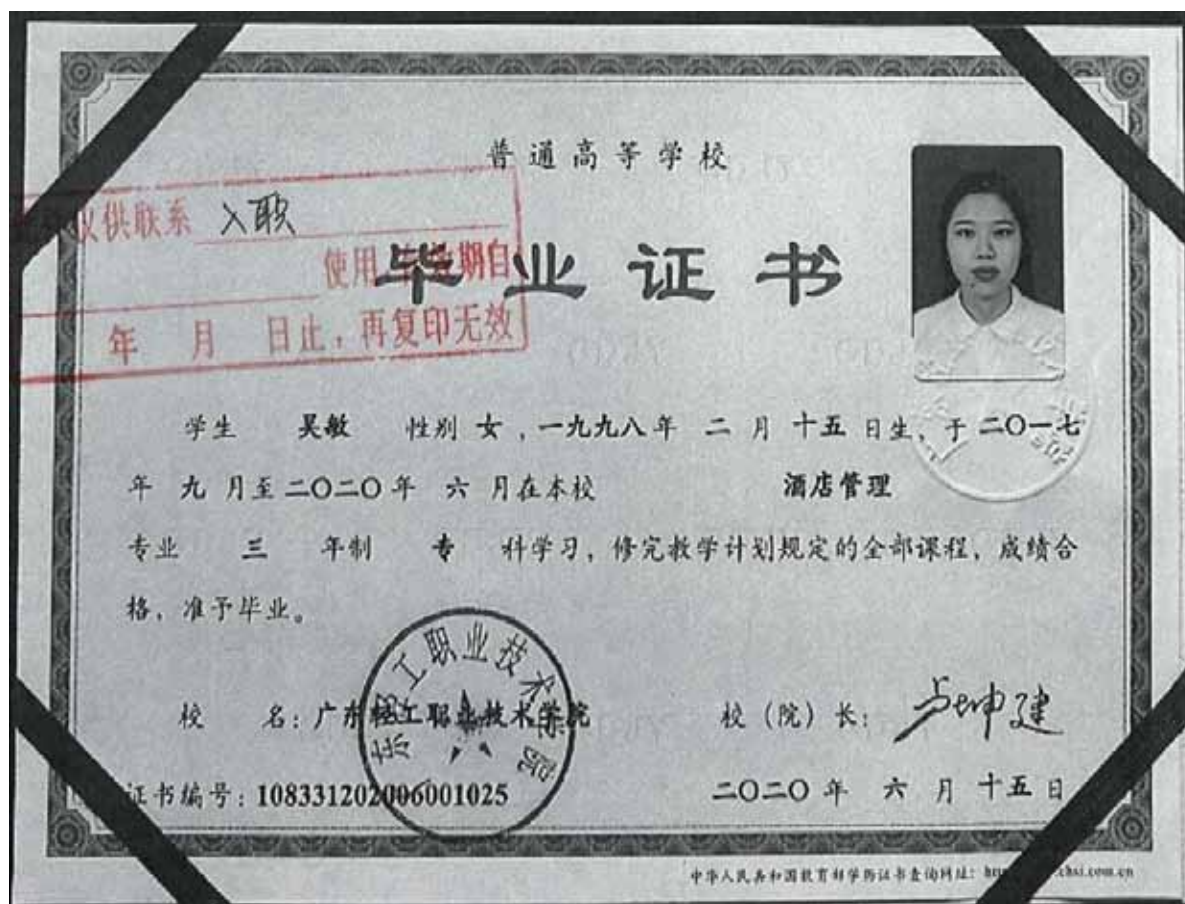 普通高等学校
仅供联系 入职
使用 期自
年 月 日止，再复印无效
毕业证书
学生 吴敏 性别 女，一九九八年 二 月 十五 日生，于二〇一七
年 九 月至二〇二〇年 六 月在本校 酒店管理
专业 三 年制 专 科学习，修完教学计划规定的全部课程，成绩合
格，准予毕业。
东轻工职业技术学院
校 名：广东轻工职业技术学院 校（院）长：卢坤建
证书编号：108331202006001025 二〇二〇年 六 月 十五 日
中华人民共和国教育部学历证书查询网址：chsi.com.cn